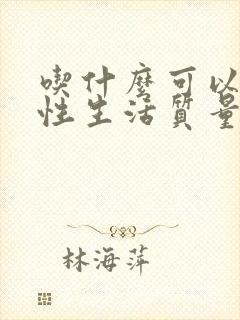 喫什麼可以
性生活質量
林海萍